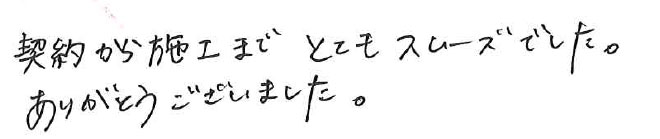 契約から施工まで とてもスムーズでした。
ありがとうございました。